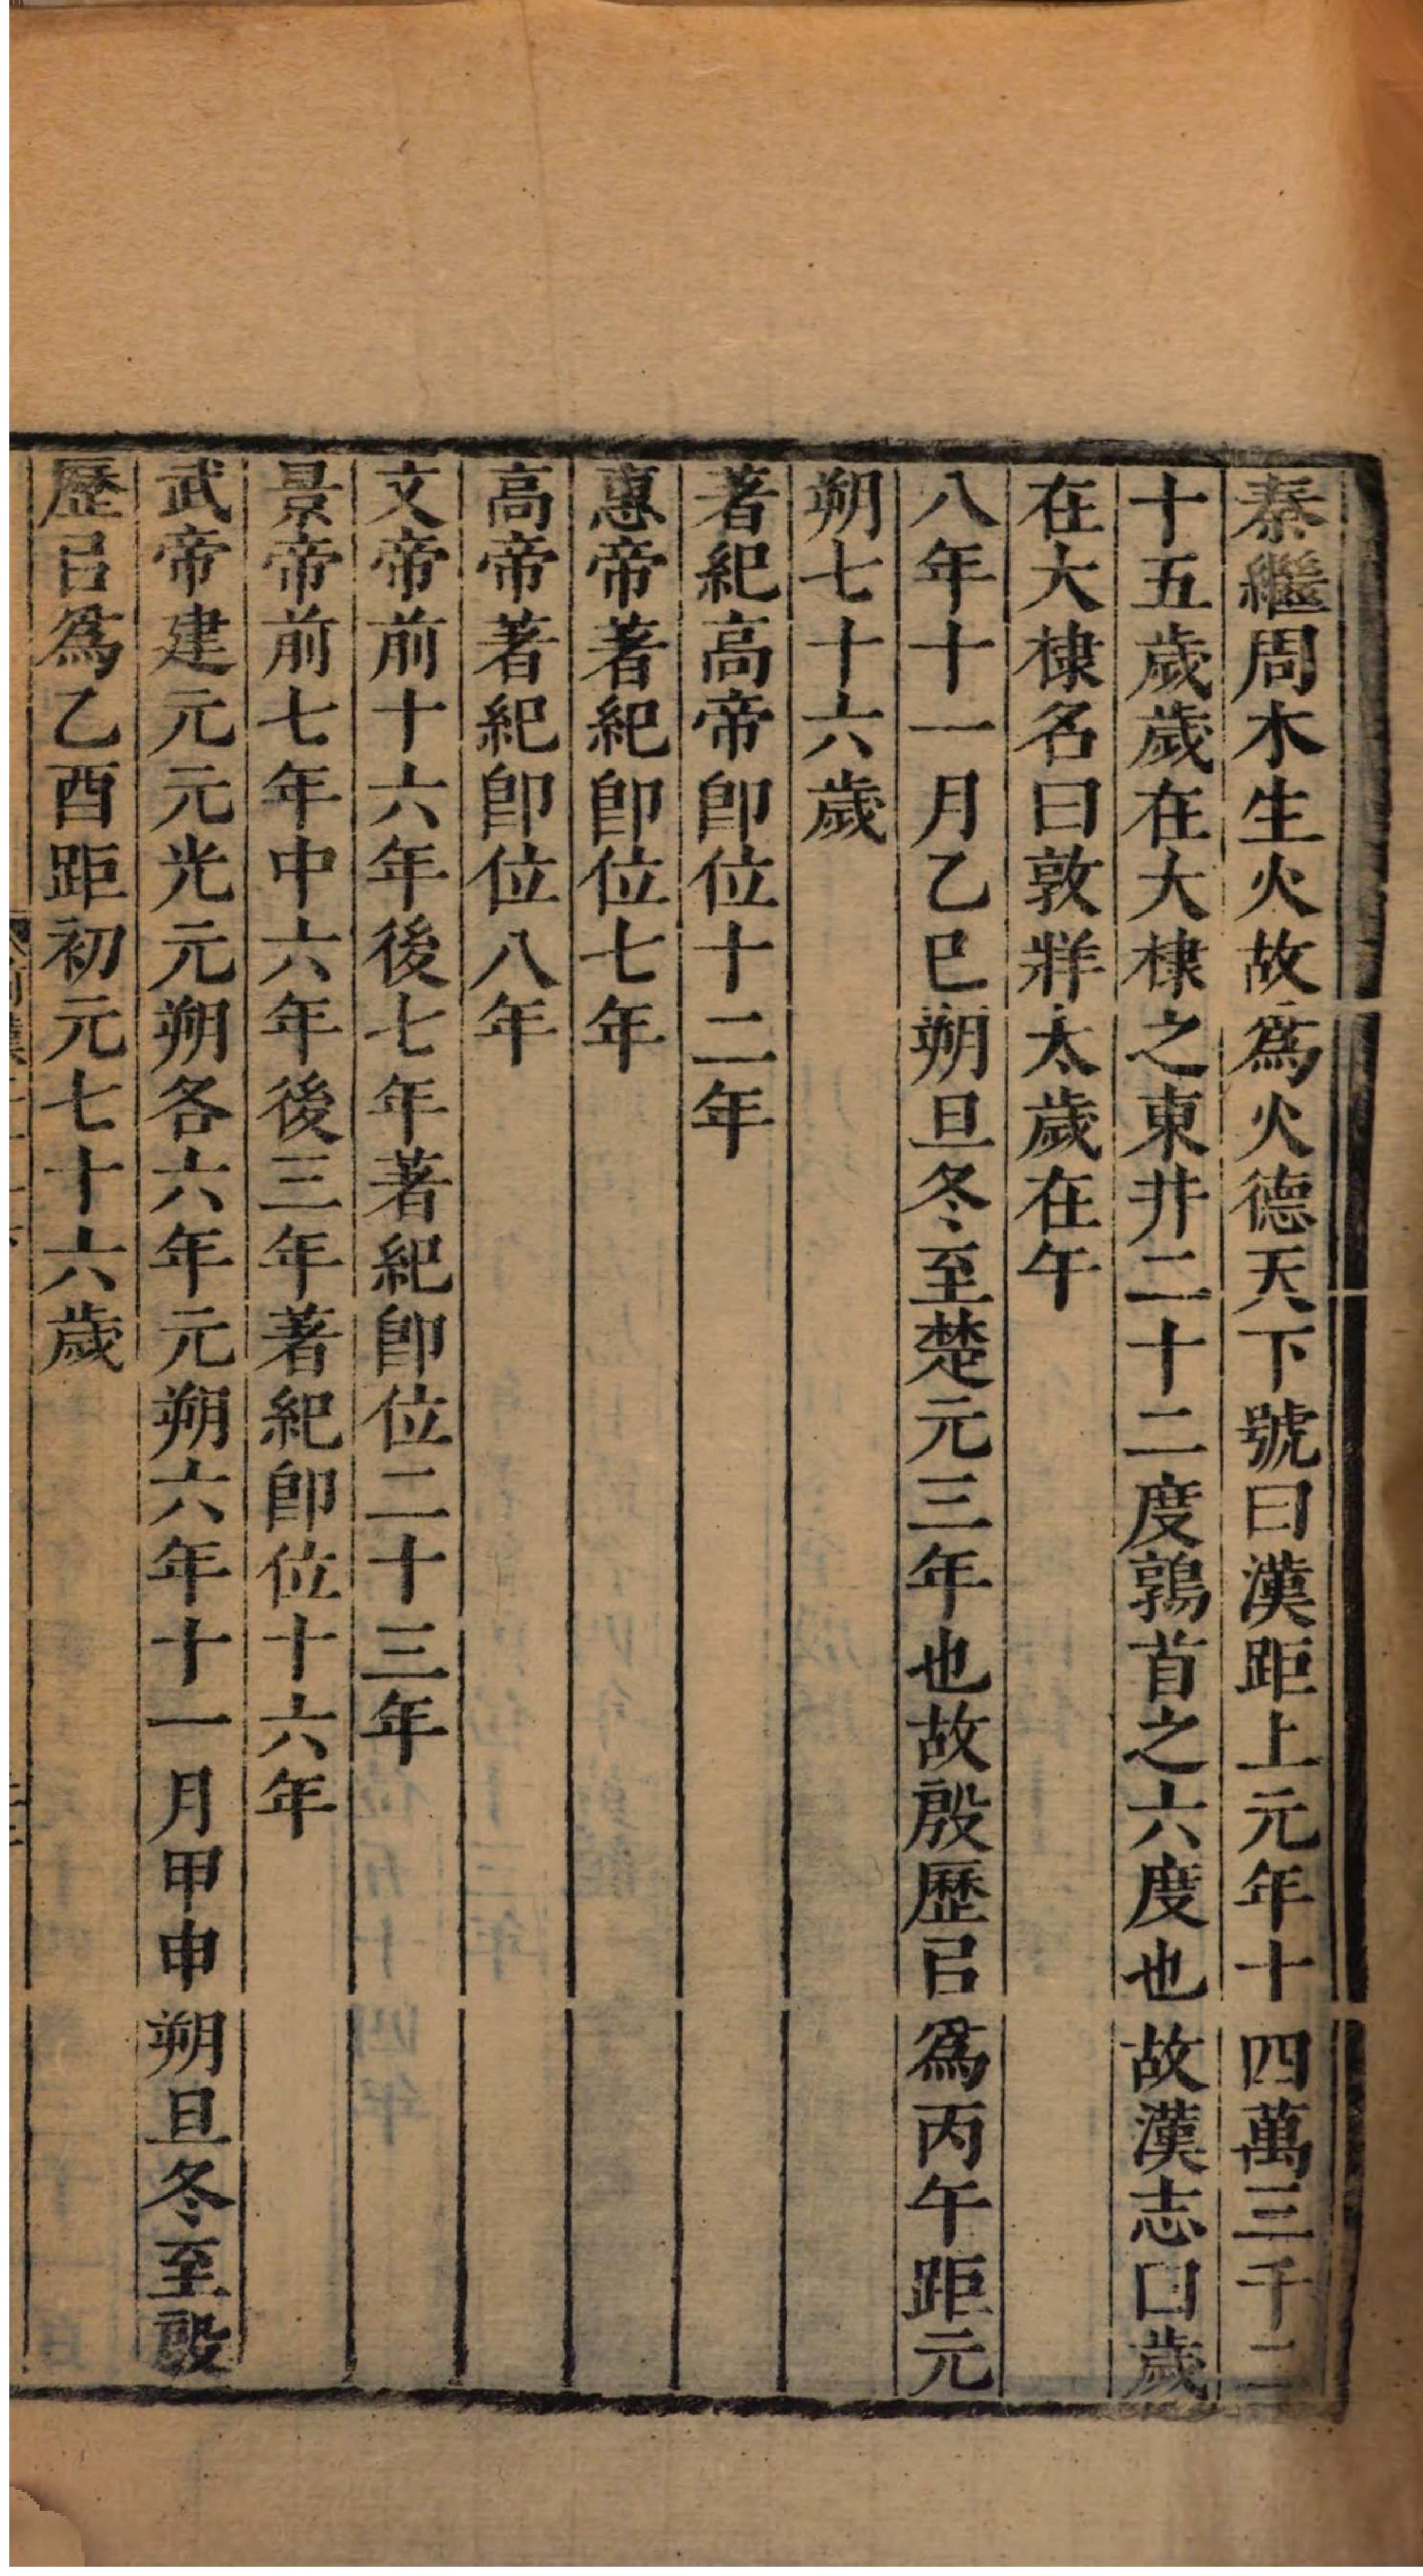 秦繼周木生火故爲火德天下號曰漢距上元年十四萬三千二
十五歲歲在大棣之東井二十二度鶉首之六度也故漢志曰歲
在大棣名曰敦牂太歲在午
八年十一月乙巳朔旦冬至楚元三年也故殷歷㠯爲丙午距元
朔七十六歲
著紀高帝卽位十二年
惠帝著紀卽位七年
高帝著紀卽位八年
文帝前十六年後七年著紀卽位二十三年
景帝前七年中六年後三年著紀卽位十六年
武帝建元元光元朔各六年元朔六年十一月甲申朔旦冬至殷
歷㠯爲乙酉距初元七十六歲